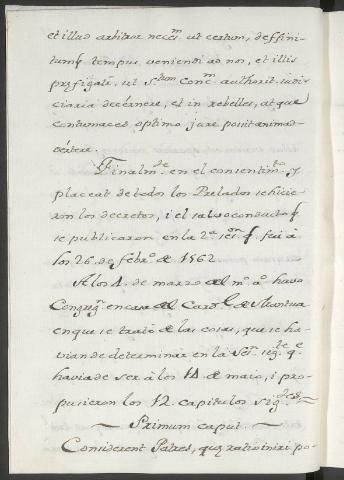 et illud arbitror neces.m ut certum, deffini-
tumq tempus veniendi ad nos, et illis
præfigatr, ut S.tum Conc.m authorit. judi-
ciaria decernere, et in rebelles, atque
contumaces optimo jure possit animad-
vertere.
Finalm.de en el consentim.to y
placeat de todos los Prelados se hicie-
ron los decretos, i el salvoconducto q
se publicaron en la 2.a ses.on q. fué à
los 26 de febr.o de 1562
A los 4 de marzo del m.o a.o havo
Congreg.n en casa del Card.l de Mantua
en que se trató de las cosas, que se ha-
vian de determinar en la Ses. sig.te q.e
havia de ser à los 14 de maio, i pro-
pusieron los 12 capitulos sig.des =
Primum caput.
Considerent Patres, quæ ratio iniri po-